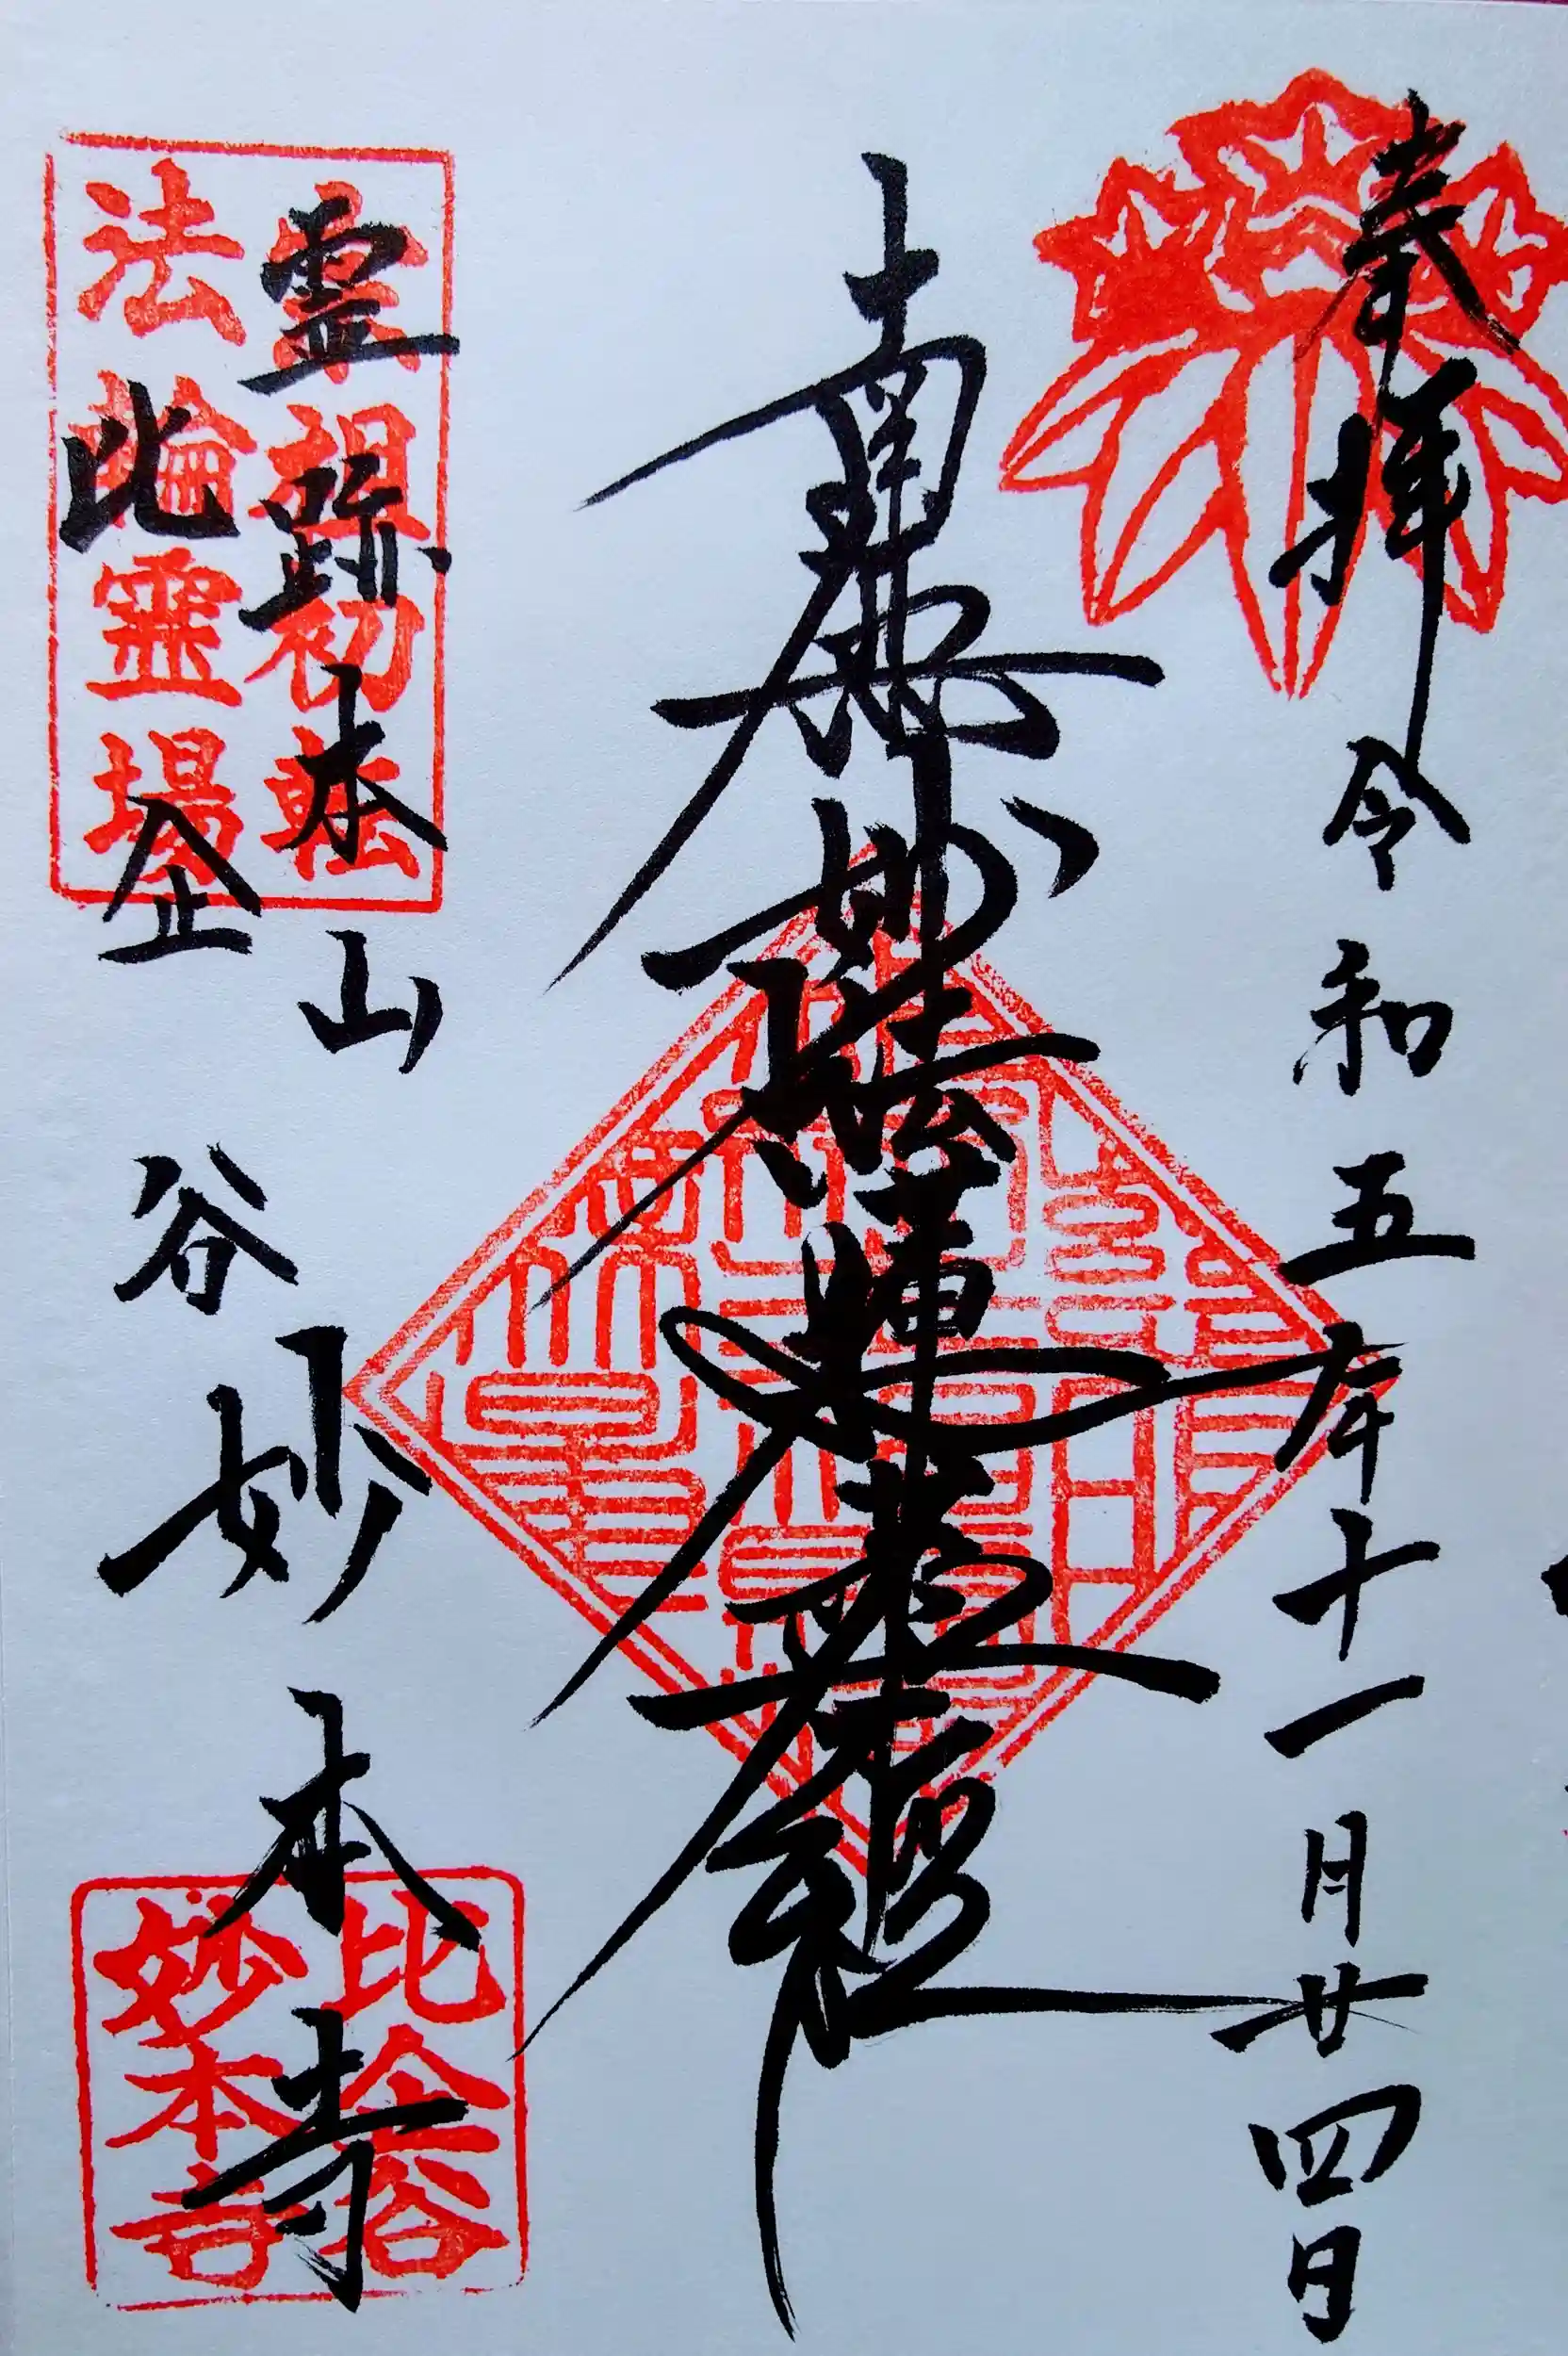 奉拝 令和五年十一月廿四日
南無妙法蓮華経
霊跡本山
比企谷
妙本寺
宗祖初転
法輪霊場
比企谷
妙本寺